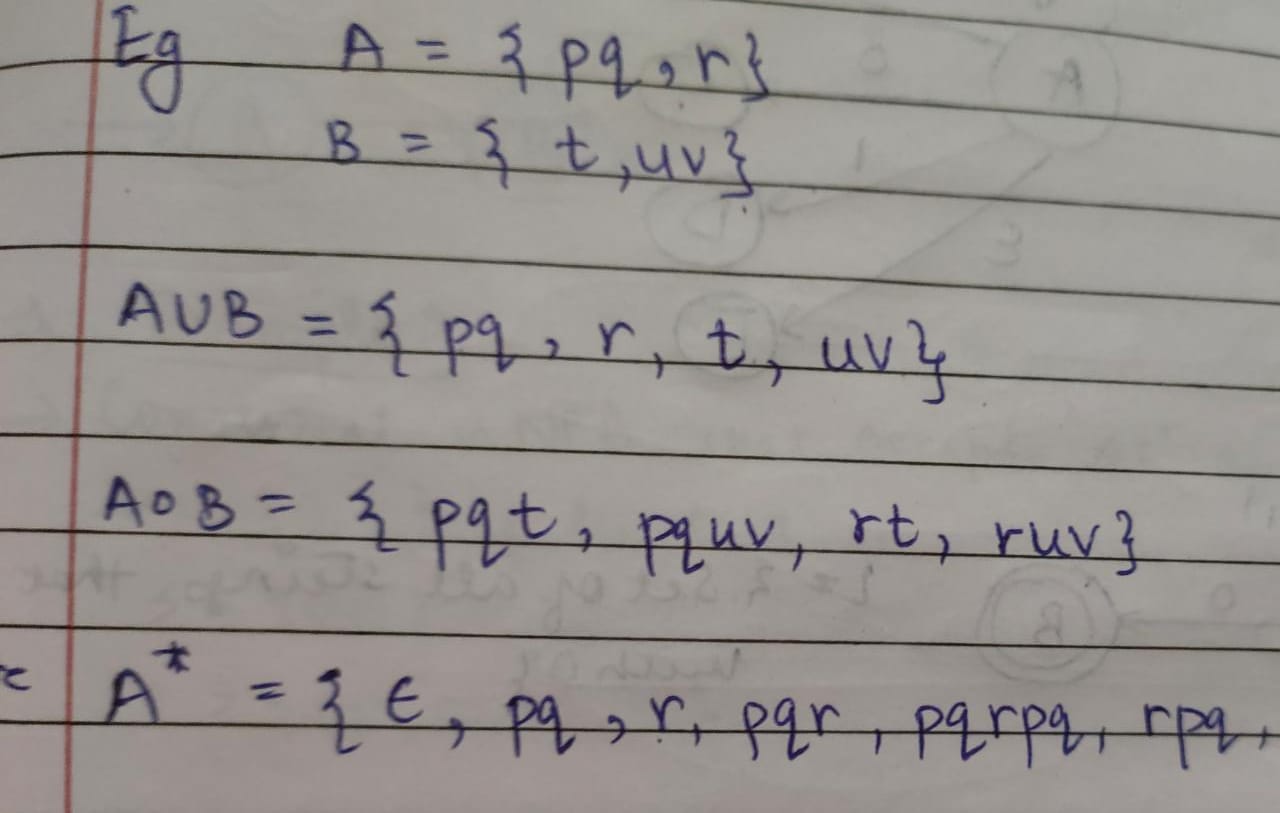 Eg A = { pq, r}
B = { t, uv}
A∪B = { pq, r, t, uv}
A∘B = { pqt, pquv, rt, ruv}
A* = { ε, pq, r, pqr, pqrpq, rpq,